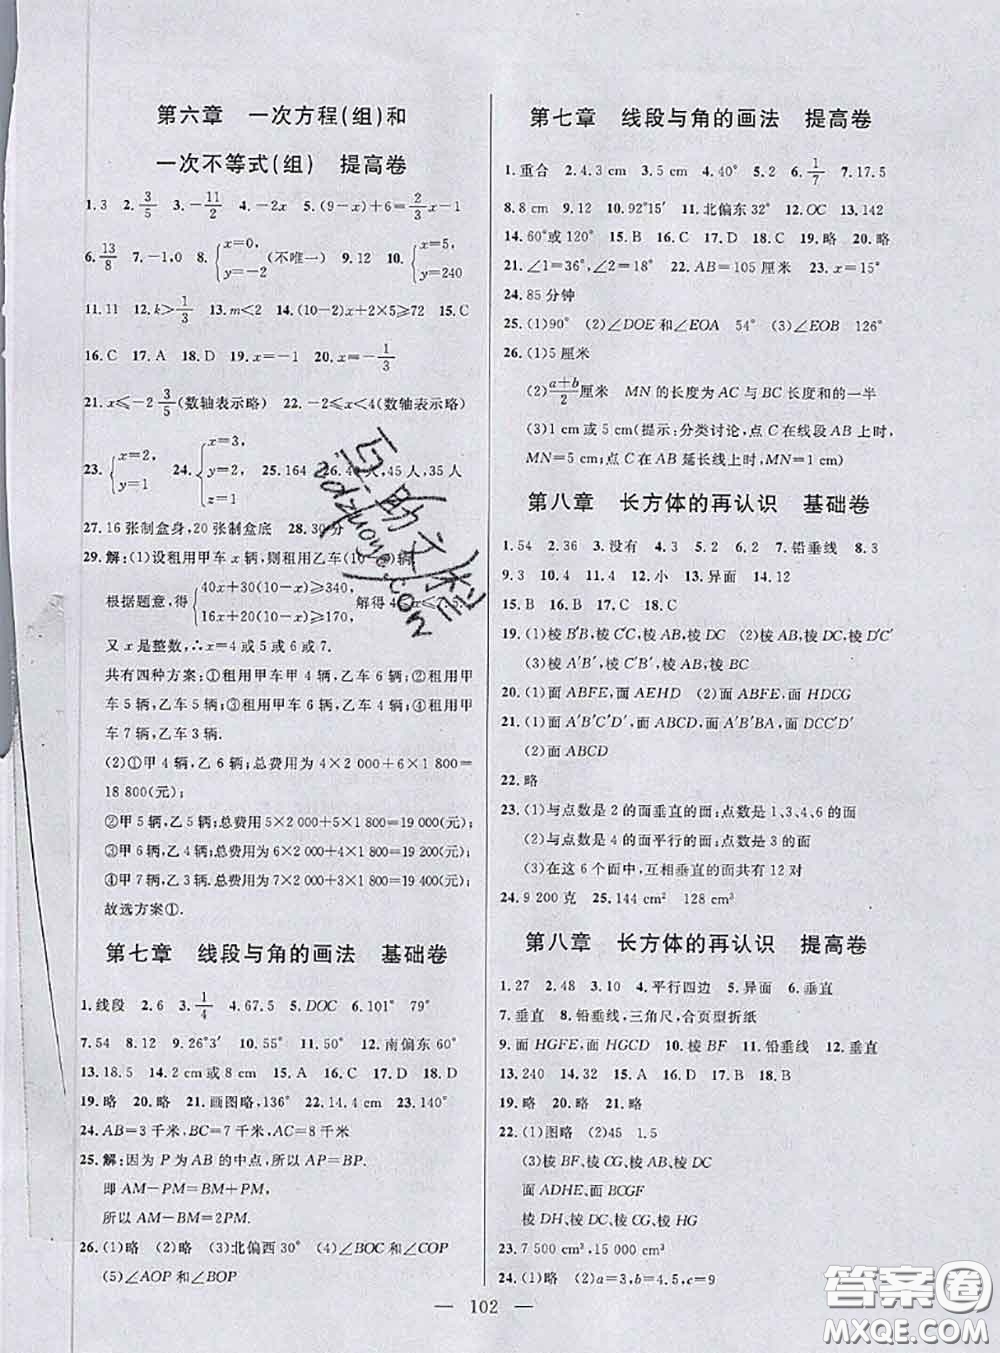 第六章 一次方程(组)和
一次不等式(组) 提高卷
1.3 2.3/5 3.-11/2 4.-2x 5.(9-x)+6=2/3x-1
6.13/8 7.-1,0 8.{x=0, y=-2 (不唯一) 9.12 10.{x=5, y=240
11.11 12.k>1/3 13.m<2 14.(10-2)x+2×5≥72 15.C
16.C 17.A 18.D 19.x=-1 20.x=-1/3
21.x≤-2 3/5(数轴表示略) 22.-2≤x<4(数轴表示略)
23.{x=2, y=1 24.{x=3, y=2, z=1 25.164 26. 人,45人,35人
27.16张制盒身,20张制盒底 28.30分
29.解:(1)设租用甲车x辆,则租用乙车(10-x)辆
根据题意,得{40x+30(10-x)≥340, 16x+20(10-x)≥170, 解得4≤x≤7.5.
又x是整数,∴x=4或5或6或7.
共有四种方案:①租用甲车甲4辆,乙车6辆;②租用甲车5
辆,乙车5辆;③租用甲车6辆,乙车4辆;④租用甲车
7辆,乙车3辆.
(2)①甲4辆,乙6辆;总费用为4×2 000+6×1 800=
18 800(元);
②甲5辆,乙5辆;总费用5×2 000+5×1 800=19 000(元);
③甲6辆,乙4辆;总费用为6×2 000+4×1 800=19 200(元);
④甲7辆,乙3辆.总费用为7×2 000+3×1 800=19 400(元);
故选方案①.
第七章 线段与角的画法 基础卷
1.线段 2.6 3.1/4 4.67.5 5.DOC 6.101° 79°
7.54 8.12 9.26°3′ 10.55° 11.50° 12.南偏东60°
13.18.5 14.2 cm或8 cm 15.D 16.D 17.C 18.D
19.略 20.略 21.画图略,136° 22.4 cm 23.140°
24.AB=3千米,BC=7千米,AC=8千米
25.解:因为P为AB的中点,所以AP=BP.
即AM-PM=BM+PM,
所以AM-BM=2PM.
26.(1)略 (2)略 (3)北偏西30° (4)∠BOC和∠COP
(5)∠AOP和∠BOP
第七章 线段与角的画法 提高卷
1.重合 2.4.3 cm 3.5 cm 4.40° 5.2 6.1/7 7.17.5
8.8 cm 9.12 10.92°15′ 11.北偏东32° 12.OC 13.142
14.60°或120° 15.B 16.C 17.D 18.C 19.略 20.略
21.∠1=36°,∠2=18° 22.AB=105厘米 23.x=15°
24.85分钟
25.(1)90° (2)∠DOE和∠EOA 54° (3)∠EOB 126°
26.(1)5厘米
(2)a+b/2厘米 MN的长度为AC与BC长度和的一半
(3)1 cm或5 cm(提示:分类讨论,点C在线段AB上时,
MN=5 cm;点C在AB延长线上时,MN=1 cm)
第八章 长方体的再认识 基础卷
1.54 2.36 3.没有 4.3 5.2 6.2 7.铅垂线 8.3
9.3 10.4 11.4 12.小 13.异面 14.12
15.B 16.D 17.C 18.C
19.(1)棱B′B,棱C′C,棱AB,棱DC (2)棱AB,棱DC,棱D′C′
(3)棱A′B′,棱C′D′,棱AB,棱BC
20.(1)面ABFE,面AEHD (2)面ABFE,面HDCG
21.(1)面A′B′C′D′,面ABCD,面A′B′BA,面DCC′D′
(2)面ABCD
22.略
23.(1)与点数是2的面垂直的面;点数是1、3、4、6的面
(2)与点数是4的面平行的面;点数是3的面
(3)在这6个面中,互相垂直的面共有12对
24.9 200克 25.144 cm² 128 cm³
第八章 长方体的再认识 提高卷
1.27 2.48 3.10 4.平行四边 5.异面 6.垂直
7.垂直 8.铅垂线,三角尺,合页型折纸
9.面HGFE,面HGCD 10.棱BF 11.铅垂线 12.垂直
13.240 14.32 15.A 16.D 17.B 18.B
19.略 20.略 21.略
22.(1)图略 (2)45 1.5
(3)棱BF,棱CG,棱AB,棱DC
面ADHE,面BCGF
棱DH,棱DC,棱CG,棱HG
23.7 500 cm³,15 000 cm³
24.(1)略 (2)a=3,b=4,c=9
— 102 —
答案圈
MXQE.COM